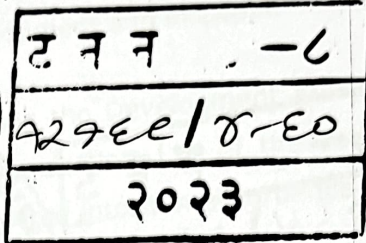 ट न न . -८
१२१६९/४-६०
२०२३